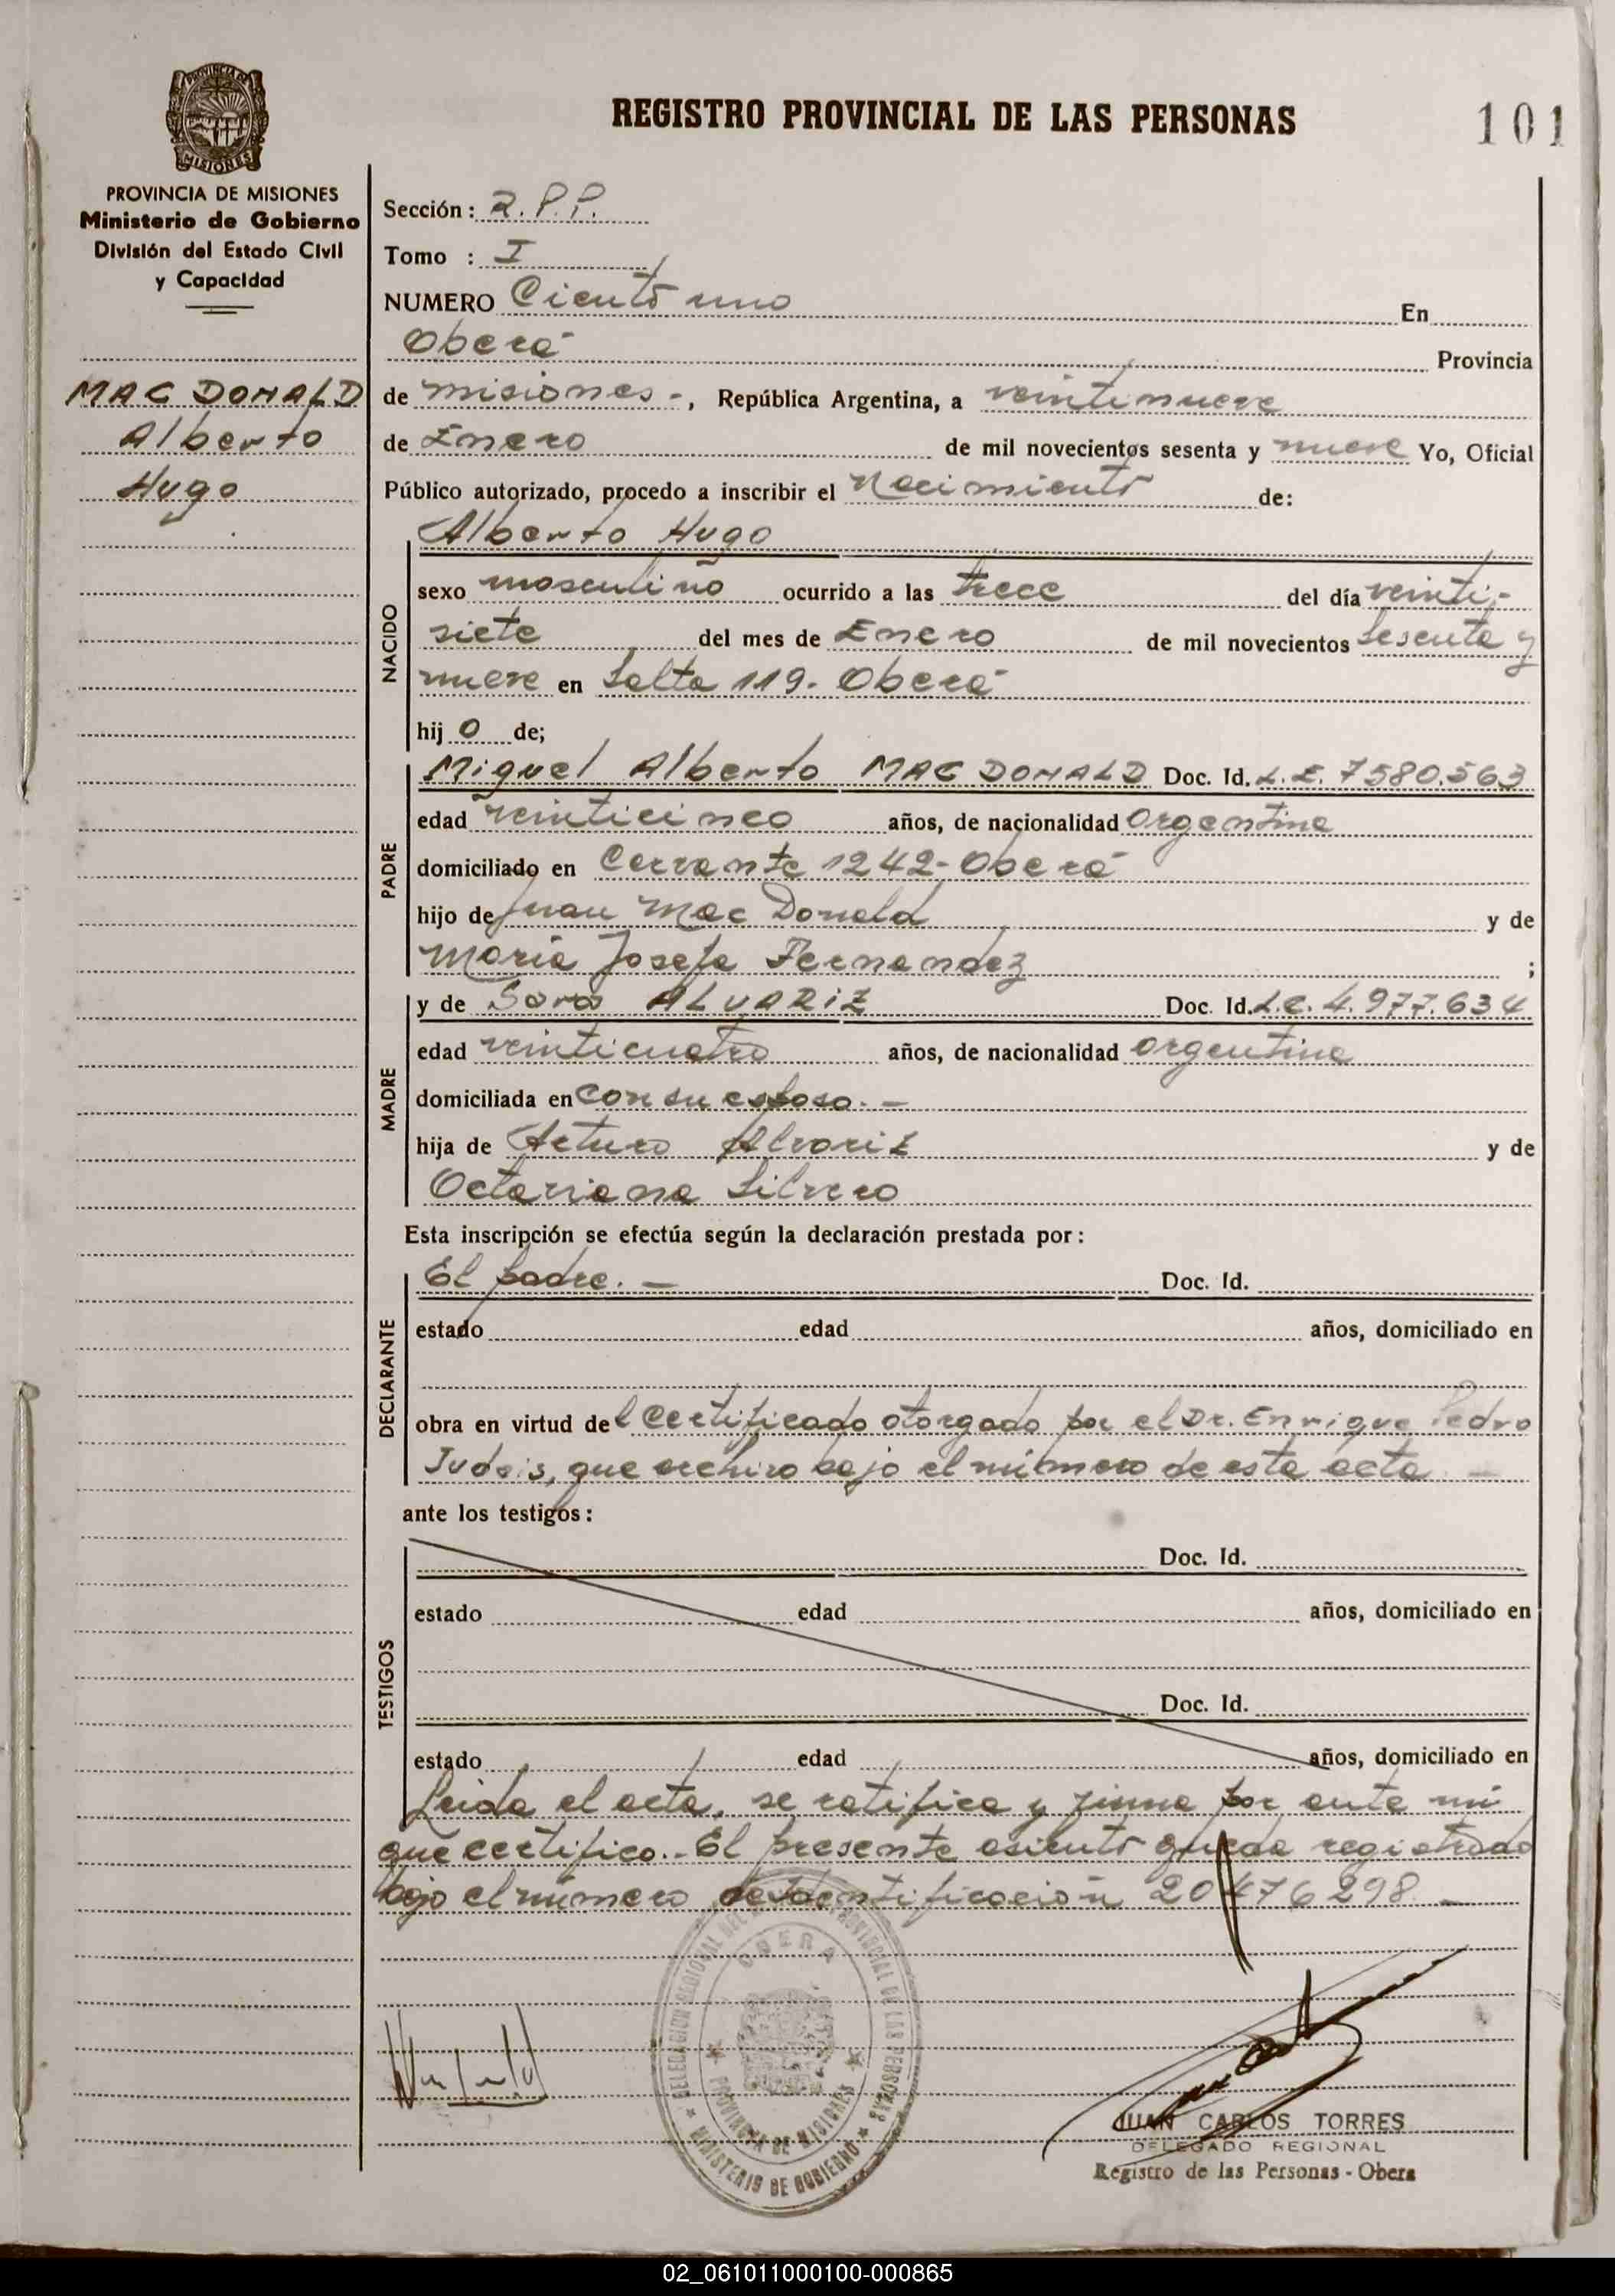 PROVINCIA DE
MISIONES
REGISTRO PROVINCIAL DE LAS PERSONAS
101
PROVINCIA DE MISIONES
Ministerio de Gobierno
División del Estado Civil
y Capacidad
MAC DONALD
Alberto
Hugo
Sección: R.P.P.
Tomo : I
NUMERO Ciento uno En
Oberá Provincia
de misiones -, República Argentina, a veintinueve
de Enero de mil novecientos sesenta y nueve Yo, Oficial
Público autorizado, procedo a inscribir el Nacimiento de:
NACIDO
Alberto Hugo
sexo masculino ocurrido a las trece del día veinti-
siete del mes de Enero de mil novecientos sesenta y
nueve en Salta 119. Oberá
hij o de;
PADRE
Miguel Alberto MAC DONALD Doc. Id. L.E. 7580.563
edad veinticinco años, de nacionalidad argentina
domiciliado en Cervante 1242- Oberá
hijo de Juan Mac Donald y de
María Josefa Fernandez ;
MADRE
y de Sara ALVARIZ Doc. Id. L.C. 4.977.634
edad veinticuatro años, de nacionalidad argentina
domiciliada en con su esposo. -
hija de Arturo Alvariz y de
Octaviana Silvero
Esta inscripción se efectúa según la declaración prestada por:
DECLARANTE
El padre. - Doc. Id.
estado edad años, domiciliado en
obra en virtud del certificado otorgado por el Dr. Enrique Pedro
que archivo bajo el número de esta acta. -
ante los testigos:
TESTIGOS
Doc. Id.
estado edad años, domiciliado en
Doc. Id.
estado edad años, domiciliado en
Leida el acta, se ratifica y firma por ante mi
que certifico.- El presente asiento queda registrado
bajo el número de identificación 20476298. -
DELEGACION REGIONAL DEL REGISTRO PROVINCIAL DE LAS PERSONAS
OBERA
PROVINCIA DE MISIONES
MINISTERIO DE GOBIERNO
JUAN CARLOS TORRES
DELEGADO REGIONAL
Registro de las Personas - Obera
02_061011000100-000865